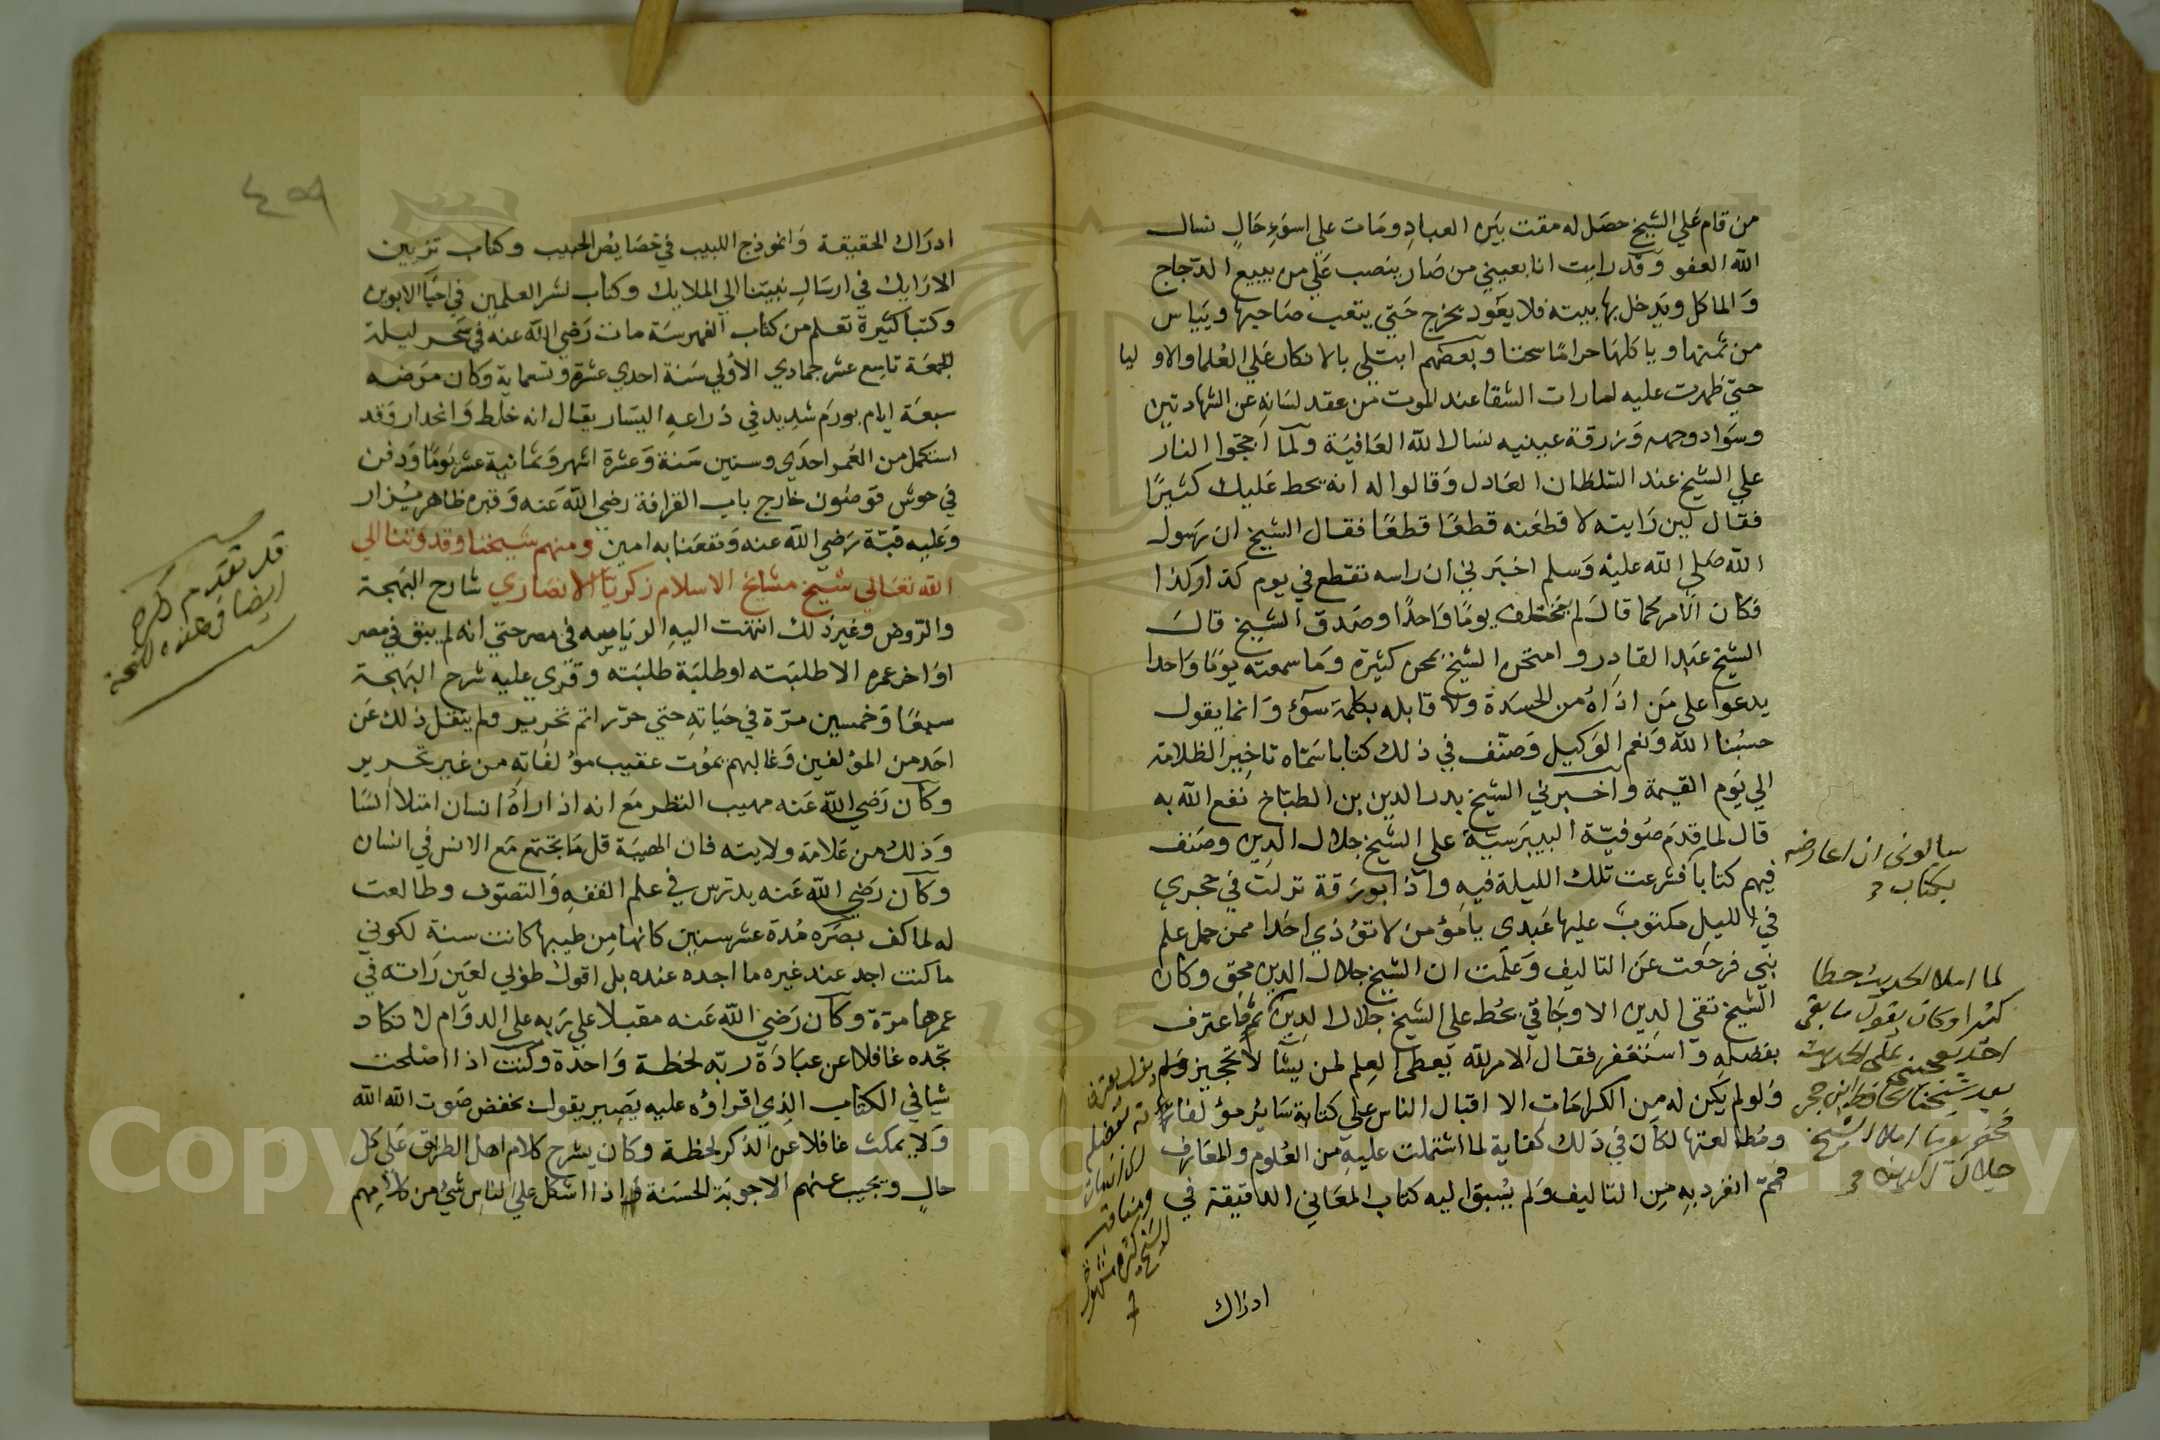 من قام علي الشيخ حصل له مقت بين العباد ومات علي اسوء حال نسال
الله العفو وقد رايت انا بعيني من صار ينصب علي من يبيع الدجاج
والماكل ويدخل بها بيته فلا يعود يخرج حتي يتعب صاحبها ويياس
من ثمنها وياكلها حراما سحتا وبعضهم ابتلي بالانكار علي العلما والاوليا
حتي ظهرت عليه امارات الشقا عند الموت من عقد لسانه عن الشهادتين
وسواد وجهه وزرقة عينيه نسال الله العافية ولما اججوا النار
علي الشيخ عند السلطان العادل وقالوا له انه يحط عليك كثيرا
فقال لين رايته لاقطعنه قطعا قطعا فقال الشيخ ان رسول
الله صلي الله عليه وسلم اخبرني ان راسه تقطع في يوم كذا وكذا
فكان الامر كما قال لم يختلف يوما واحدا وصدق الشيخ قال
الشيخ عبد القادر وامتحن الشيخ بمحن كثيرة وما سمعته يوما واحدا
يدعوا علي من اذاه من الحسدة ولا قابله بكلمة سوء وانما يقول
حسبنا الله ونعم الوكيل وصنف في ذلك كتابا سماه تاخير الظلامة
الي يوم القيمة واخبرني الشيخ بدر الدين بن الطباخ نفع الله به
قال لما قدم صوفية البيبرسية علي الشيخ جلال الدين وصنف
فيهم كتابا فشرعت تلك الليلة فيه واذا بورقة نزلت في حجري
في الليل مكتوب عليها عبدي يا مؤمن لا تؤذي احدا ممن حمل علم
نبي فرجعت عن التاليف وعلمت ان الشيخ جلال الدين محق وكان
الشيخ تقي الدين الاوجاقي يحط علي الشيخ جلال الدين ثم اعترف
بفضله واستغفر فقال الامر لله يعطي العلم لمن يشا لا تحجيز ولم
ولو لم يكن له من الكرامات الا اقبال الناس علي كتابة ساير مؤلفاته
ومطالعتها لكان في ذلك كفاية لما اشتملت عليه من العلوم والمعارف
فممّ انفرد به من التاليف ولم يسبق اليه كتاب المعاني الدقيقة في
ادراك
سالوني ان اعارضه
بكتاب
لما املا الحديث حطا
كثيرا وكان يقول ما بقي
احد
بعد شيخنا الحافظ ابن حجر
الشيخ
جلال الدين
٤٥٩
ادراك الحقيقة وانموذج اللبيب في خصايص الحبيب وكتاب تزيين
الارايك في ارسال نبينا الي الملايك وكتاب نشر العلمين في احيا الابوين
وكتبا كثيرة تعلم من كتاب الفهرسة مات رضي الله عنه في سحر ليلة
الجمعة تاسع عشر جمادي الاولي سنة احدي عشرة وتسعماية وكان مرضه
سبعة ايام بورم شديد في ذراعه اليسار يقال انه خلط وانحدار وقد
استكمل من العمر احدي وستين سنة وعشرة اشهر وثمانية عشر يوما ودفن
في حوش قوصون خارج باب القرافة رضي الله عنه وقبره ظاهر يزار
وعليه قبة رضي الله عنه ونفعنا به امين ومنهم شيخنا وقدوتنا الي
الله تعالي شيخ مشايخ الاسلام زكريا الانصاري شارح البهجة
والروض وغير ذلك انتهت اليه الرياسة في مصر حتي انه لم يبق في مصر
اواخر عمره الا طلبته او طلبة طلبته وقري عليه شرح البهجة
سبعا وخمسين مرة في حياته حتي حرر اتم تحرير ولم ينقل ذلك عن
احد من المؤلفين وغالبهم يموت عقيب مؤلفاته من غير تحرير
وكان رضي الله عنه مهيب النظر مع انه اذا راه انسان امتلا انسا
وذلك من علامة ولايته فان الهيبة قل ما تجتمع مع الانس في انسان
وكان رضي الله عنه يدرس في علم الفقه والتصوف وطالعت
له لما كف بصره مدة عشر سنين كانها من طيبها كانت سنة لكوني
ما كنت اجد عند غيره ما اجده عنده بل اقول طوبي لعين راته في
عمرها مرة وكان رضي الله عنه مقبلا علي ربه علي الدوام لا تكاد
تجده غافلا عن عبادة ربه لحظة واحدة وكنت اذا اصلحت
شيا في الكتاب الذي اقراؤه عليه يصير يقول بخفض صوت الله الله
ولا يمكث غافلا عن الذكر لحظة وكان يشرح كلام اهل الطريق علي كل
حال ويجيب عنهم الاجوبة الحسنة اذا اشكل علي الناس شي من كلامهم
قد تقدم ذكره
ايضا في هذه النسخة
Copyright © King Saud University
195